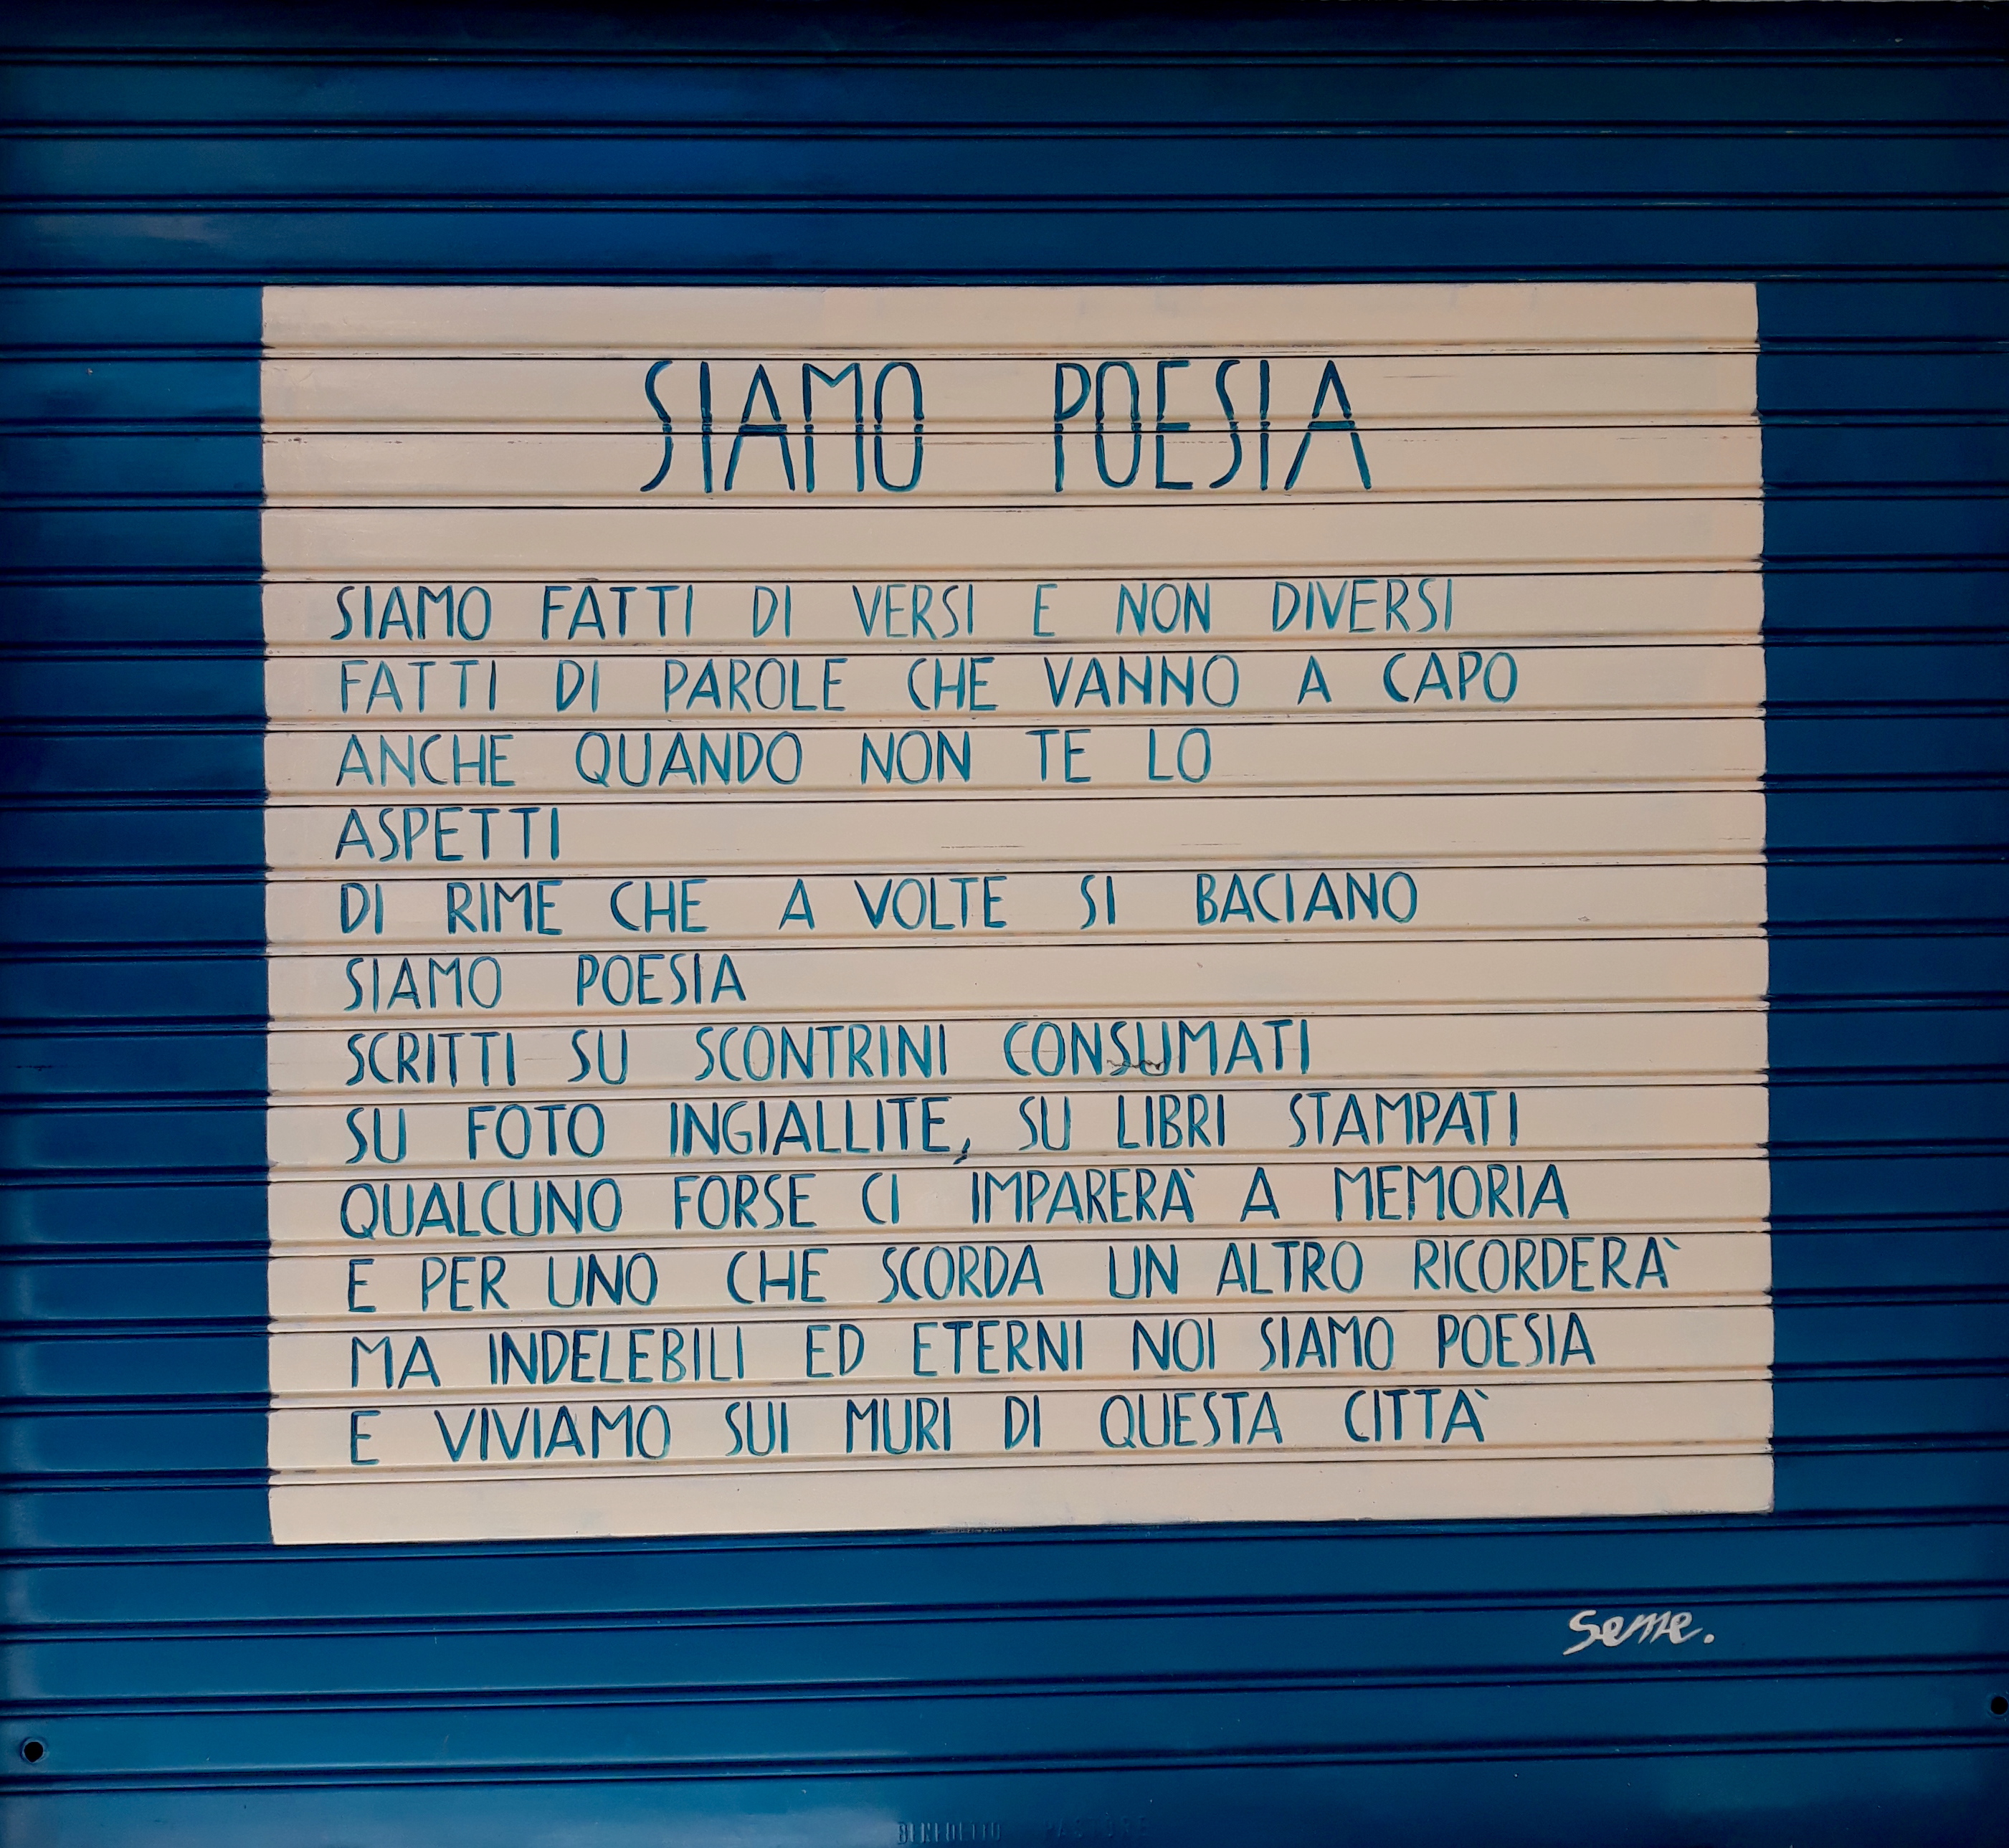 SIAMO POESIA
SIAMO FATTI DI VERSI E NON DIVERSI
FATTI DI PAROLE CHE VANNO A CAPO
ANCHE QUANDO NON TE LO
ASPETTI
DI RIME CHE A VOLTE SI BACIANO
SIAMO POESIA
SCRITTI SU SCONTRINI CONSUMATI
SU FOTO INGIALLITE, SU LIBRI STAMPATI
QUALCUNO FORSE CI IMPARERA' A MEMORIA
E PER UNO CHE SCORDA UN ALTRO RICORDERA'
MA INDELEBILI ED ETERNI NOI SIAMO POESIA
E VIVIAMO SUI MURI DI QUESTA CITTA'
Seme.
BENEDETTO PASTORE